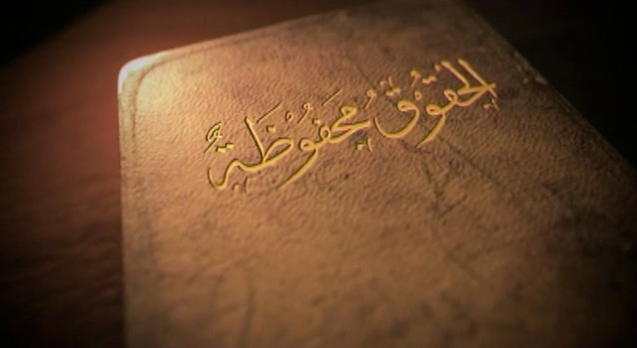 الحُقُوقُ مَحْفُوْظَةٌ